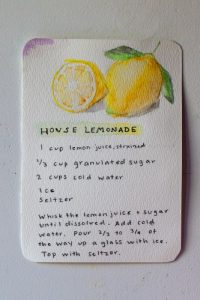 HOUSE LEMONADE
1 cup lemon juice, strained
1/3 cup granulated sugar
2 cups cold water
Ice
Seltzer
Whisk the lemon juice + sugar
until dissolved. Add cold
water. Pour 2/3 to 3/4 of
the way up a glass with ice.
Top with seltzer.